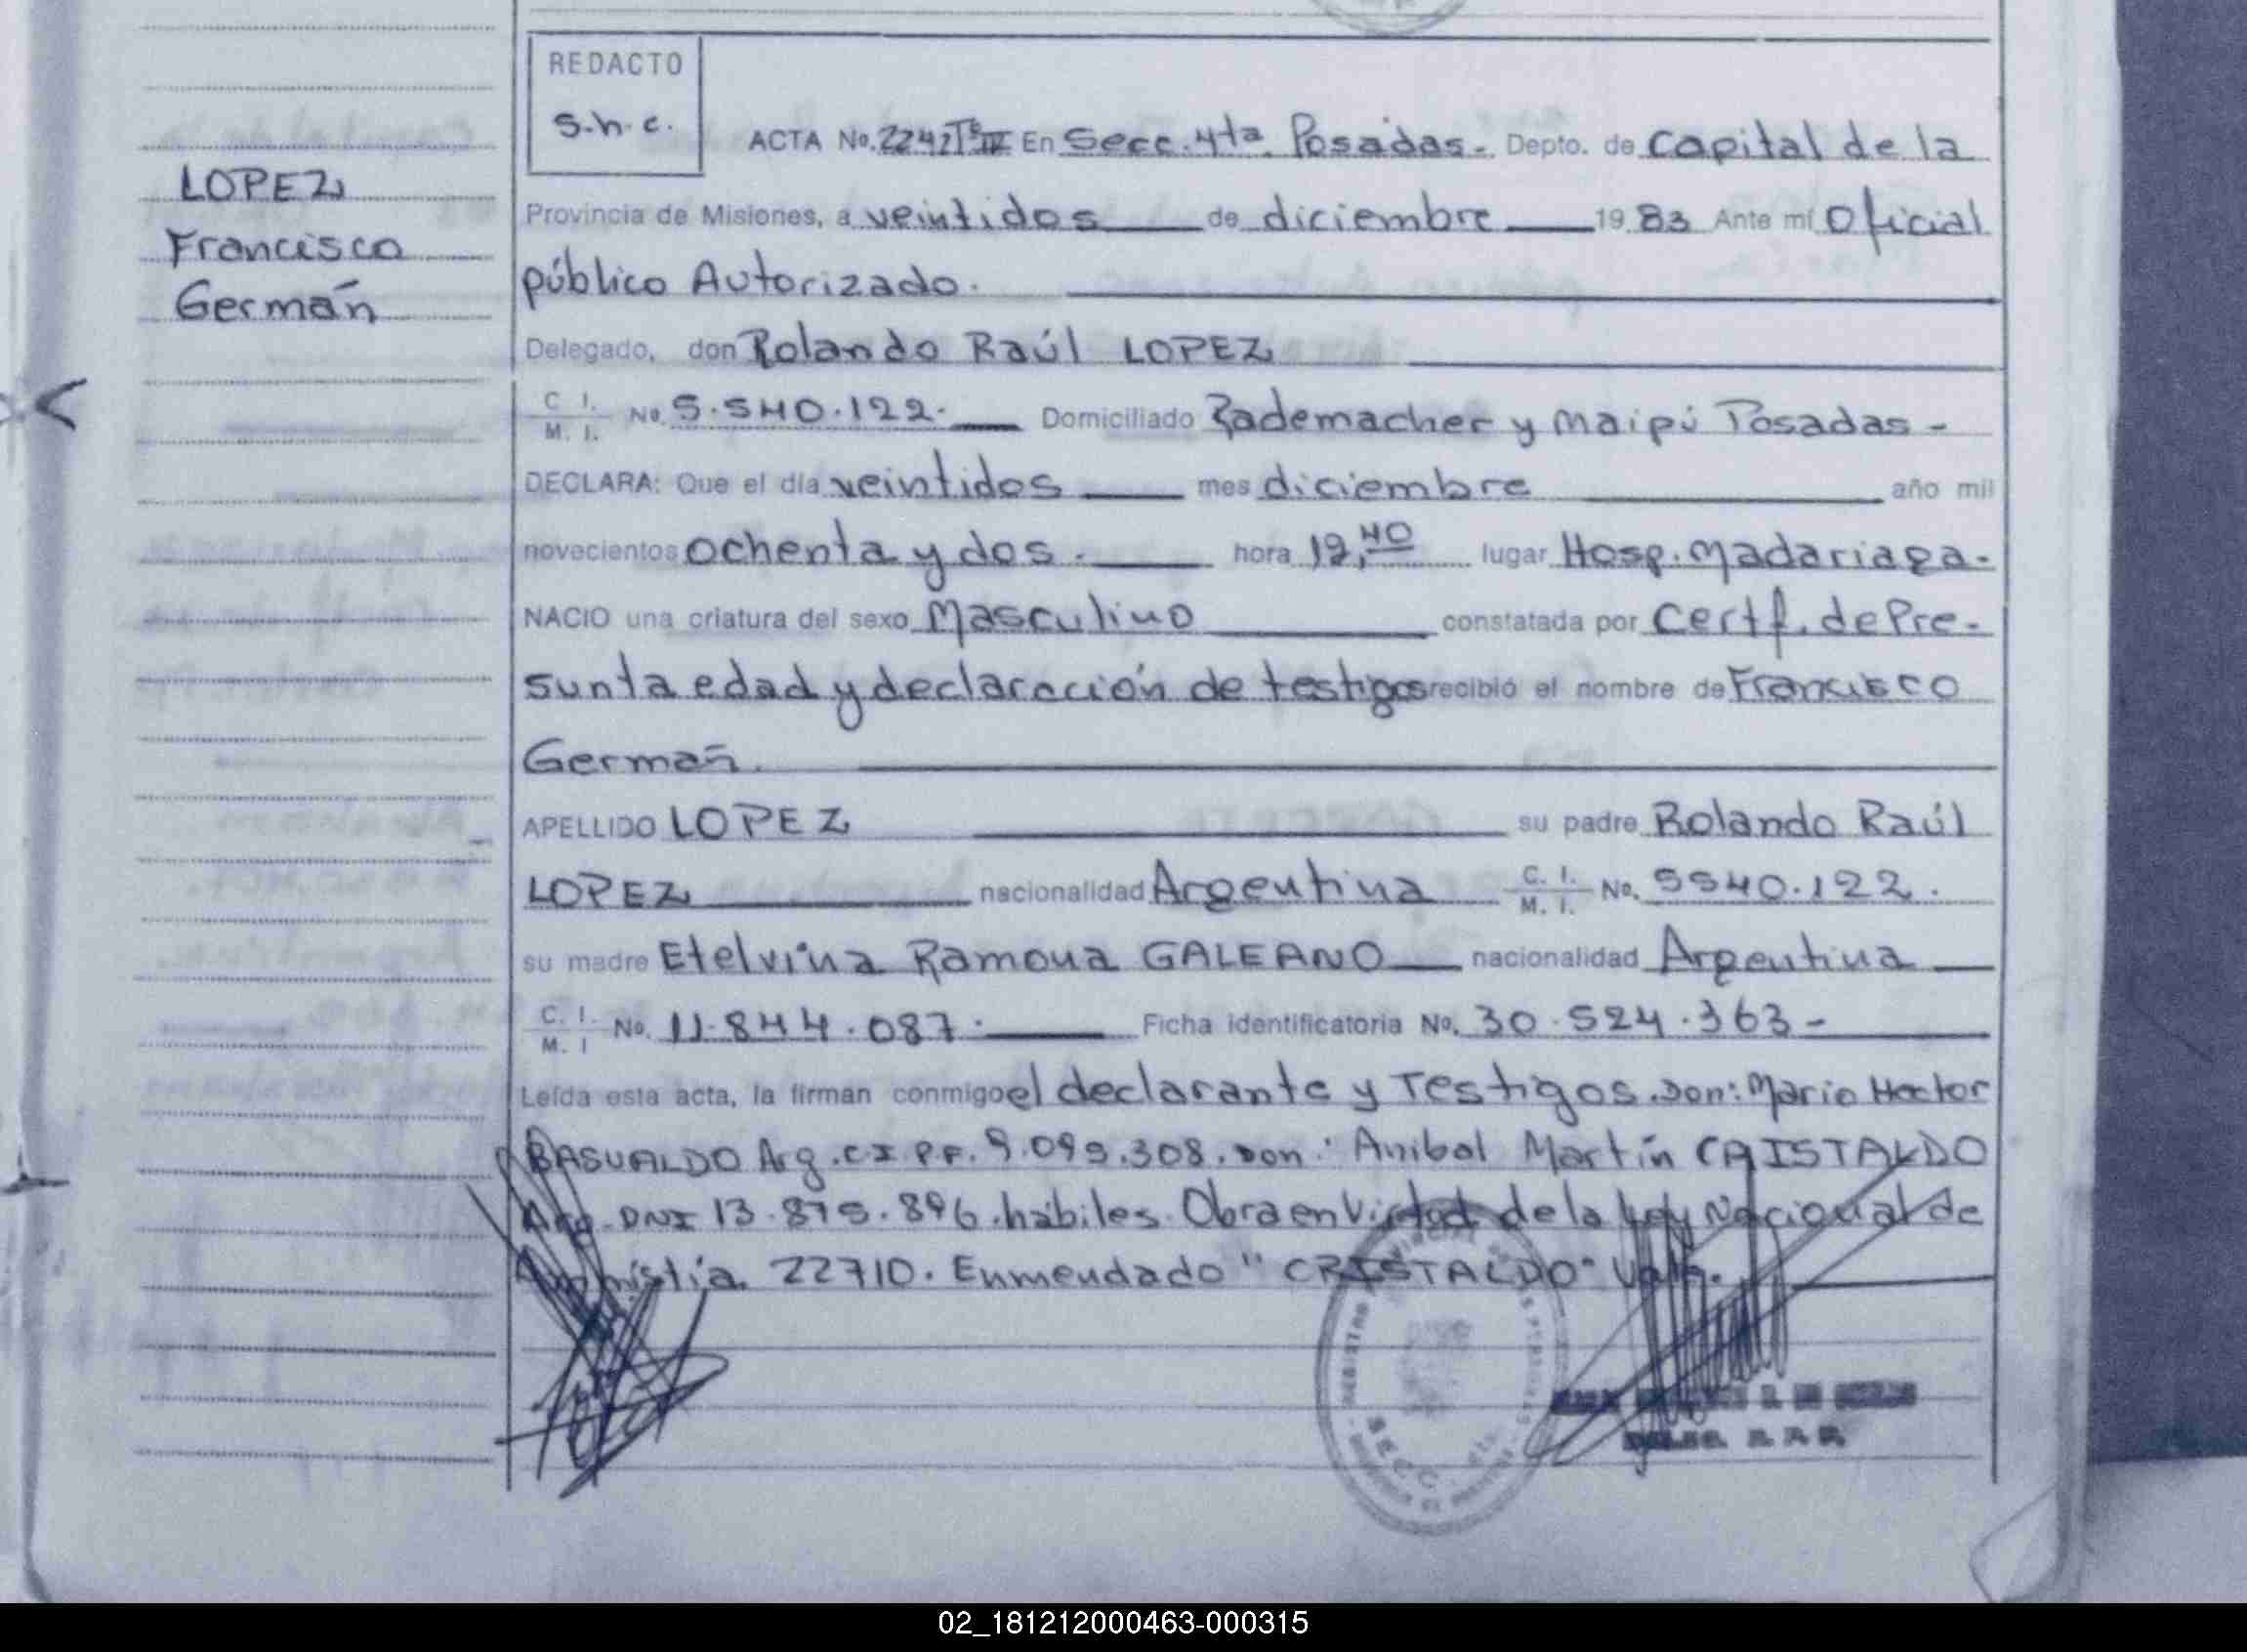 REDACTO
S.h.c.
ACTA No. 2242 Tº IV En Secc. 4ta. Posadas.- Depto. de Capital de la
LOPEZ
Francisco
Germán
Provincia de Misiones, a veintidos de diciembre 19 83 Ante mí Oficial
público Autorizado.
Delegado, don Rolando Raúl LOPEZ
C. I.
M. I. No. 5.540.122. Domiciliado Rademacher y Maipú Posadas -
DECLARA: Que el día veintidos mes diciembre año mil
novecientos ochenta y dos. hora 12,40 lugar Hosp. Madariaga.
NACIO una criatura del sexo Masculino constatada por Certf. de Pre-
sunta edad y declaración de testigos recibió el nombre de Francisco
Germán.
APELLIDO LOPEZ su padre Rolando Raúl
LOPEZ nacionalidad Argentina C. I.
M. I. No. 5540.122.
su madre Etelvina Ramona GALEANO nacionalidad Argentina
C. I.
M. I No. 11.844.087. Ficha identificatoria No. 30.524.363-
Leída esta acta, la firman conmigo el declarante y Testigos. Don: Mario Hector
BASUALDO Arg. C.I. P.F. 9.099.308. Don: Anibal Martín CRISTALDO
Arg. DNI 13.879.896. hábiles. Obra en Virtud de la Ley Nacional de
Amnistía. 22710. Enmendado "CRISTALDO" Vale.
SECC.
02_181212000463-000315